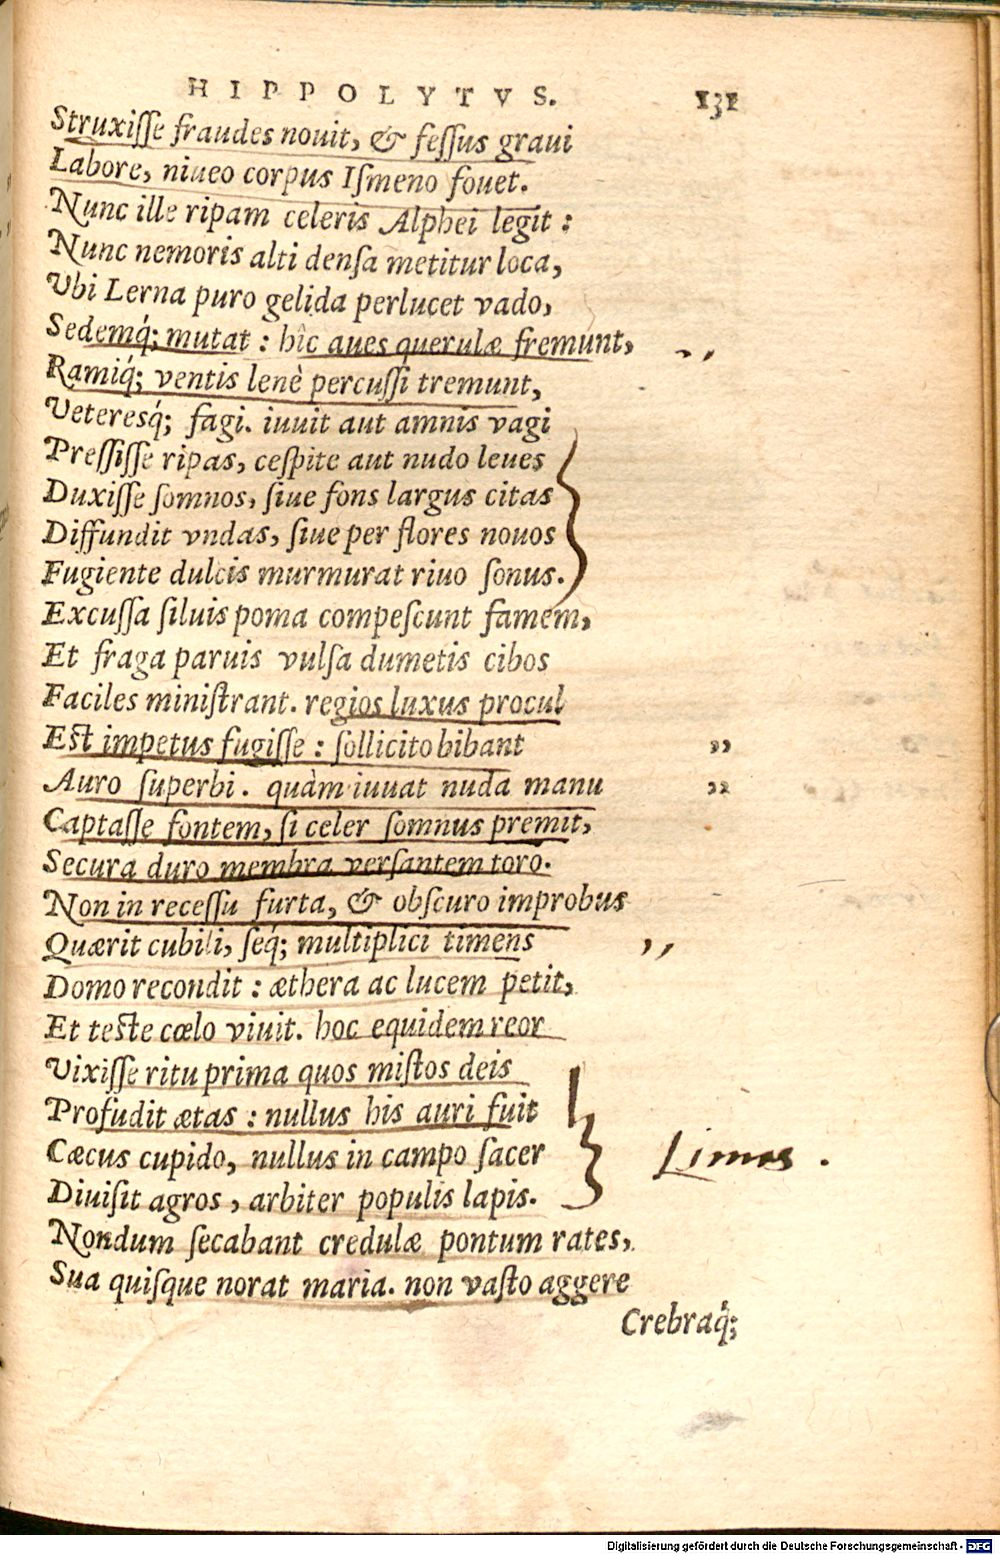 HIPPOLYTVS. 131
Struxiſſe fraudes nouit, & feſſus graui
Labore, niueo corpus Iſmeno fouet.
Nunc ille ripam celeris Alphei legit :
Nunc nemoris alti denſa metitur loca,
Vbi Lerna puro gelida perlucet vado,
Sedemq́; mutat : hîc aues querulæ fremunt, ,,
Ramiq́; ventis lenè percuſſi tremunt,
Veteresq́; fagi. iuuit aut amnis vagi
Preſſiſſe ripas, ceſpite aut nudo leues
Duxiſſe ſomnos, ſiue fons largus citas
Diffundit vndas, ſiue per flores nouos
Fugiente dulcis murmurat riuo ſonus.
Excuſſa ſiluis poma compeſcunt famem,
Et fraga paruis vulſa dumetis cibos
Faciles miniſtrant. regios luxus procul
Eſt impetus fugiſſe : ſollicito bibant ,,
Auro ſuperbi. quàm iuuat nuda manu ,,
Captaſſe fontem, ſi celer ſomnus premit,
Secura duro membra verſantem toro.
Non in receſſu furta, & obſcuro improbus
Quærit cubili, ſeq́; multiplici timens ,,
Domo recondit : æthera ac lucem petit,
Et teſte cœlo viuit. hoc equidem reor
Vixiſſe ritu prima quos miſtos deis
Profudit ætas : nullus his auri fuit
Cæcus cupido, nullus in campo ſacer
Limes .
Diuiſit agros, arbiter populis lapis.
Nondum ſecabant credulæ pontum rates,
Sua quiſque norat maria. non vaſto aggere
Crebraq́;
Digitalisierung gefördert durch die Deutsche Forschungsgemeinschaft - DFG